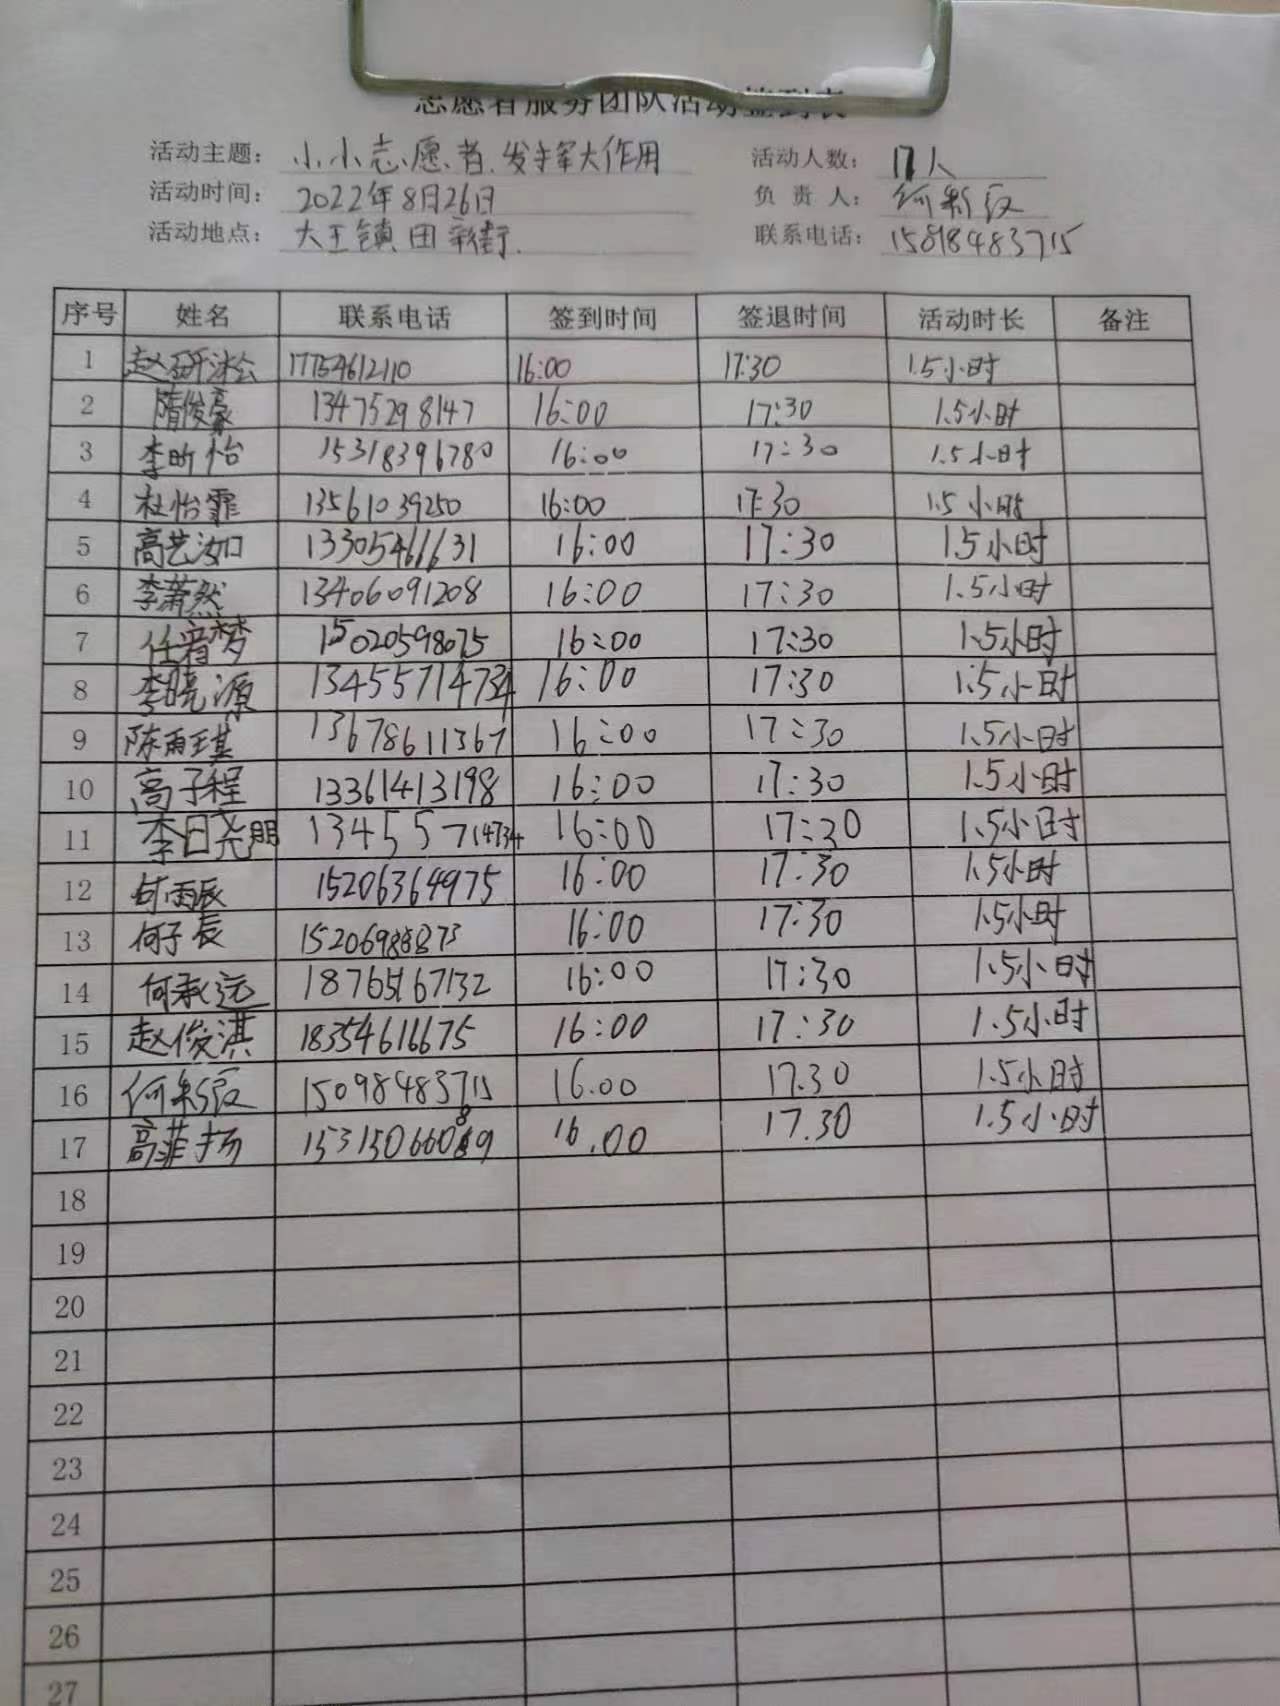 志愿者服务团队活动签到表
活动主题： 小小志愿者.发挥大作用 活动人数： 17人
活动时间： 2022年8月26日 负责人：
活动地点： 大王镇田新街. 联系电话： 15818483715
序号 姓名 联系电话 签到时间 签退时间 活动时长 备注
1 赵研淞 17754612110 16:00 17:30 1.5小时
2 隋俊豪 13475298147 16:00 17:30 1.5小时
3 李昕怡 15318396780 16:00 17:30 1.5小时
4 杜怡霏 13561039250 16:00 17:30 1.5小时
5 高艺汝 13305461631 16:00 17:30 1.5小时
6 李萧然 13406091208 16:00 17:30 1.5小时
7 15020598075 16:00 17:30 1.5小时
8 李晓源 13455714734 16:00 17:30 1.5小时
9 陈雨琪 13678611367 16:00 17:30 1.5小时
10 高子程 13361413198 16:00 17:30 1.5小时
11 李晓朋 13455714734 16:00 17:30 1.5小时
12 15206364975 16:00 17:30 1.5小时
13 何子辰 16:00 17:30 1.5小时
14 何承远 18765167132 16:00 17:30 1.5小时
15 赵俊淇 18354616675 16:00 17:30 1.5小时
16 15098483715 16.00 17.30 1.5小时
17 高菲扬 15315066089 16.00 17.30 1.5小时
18
19
20
21
22
23
24
25
26
27